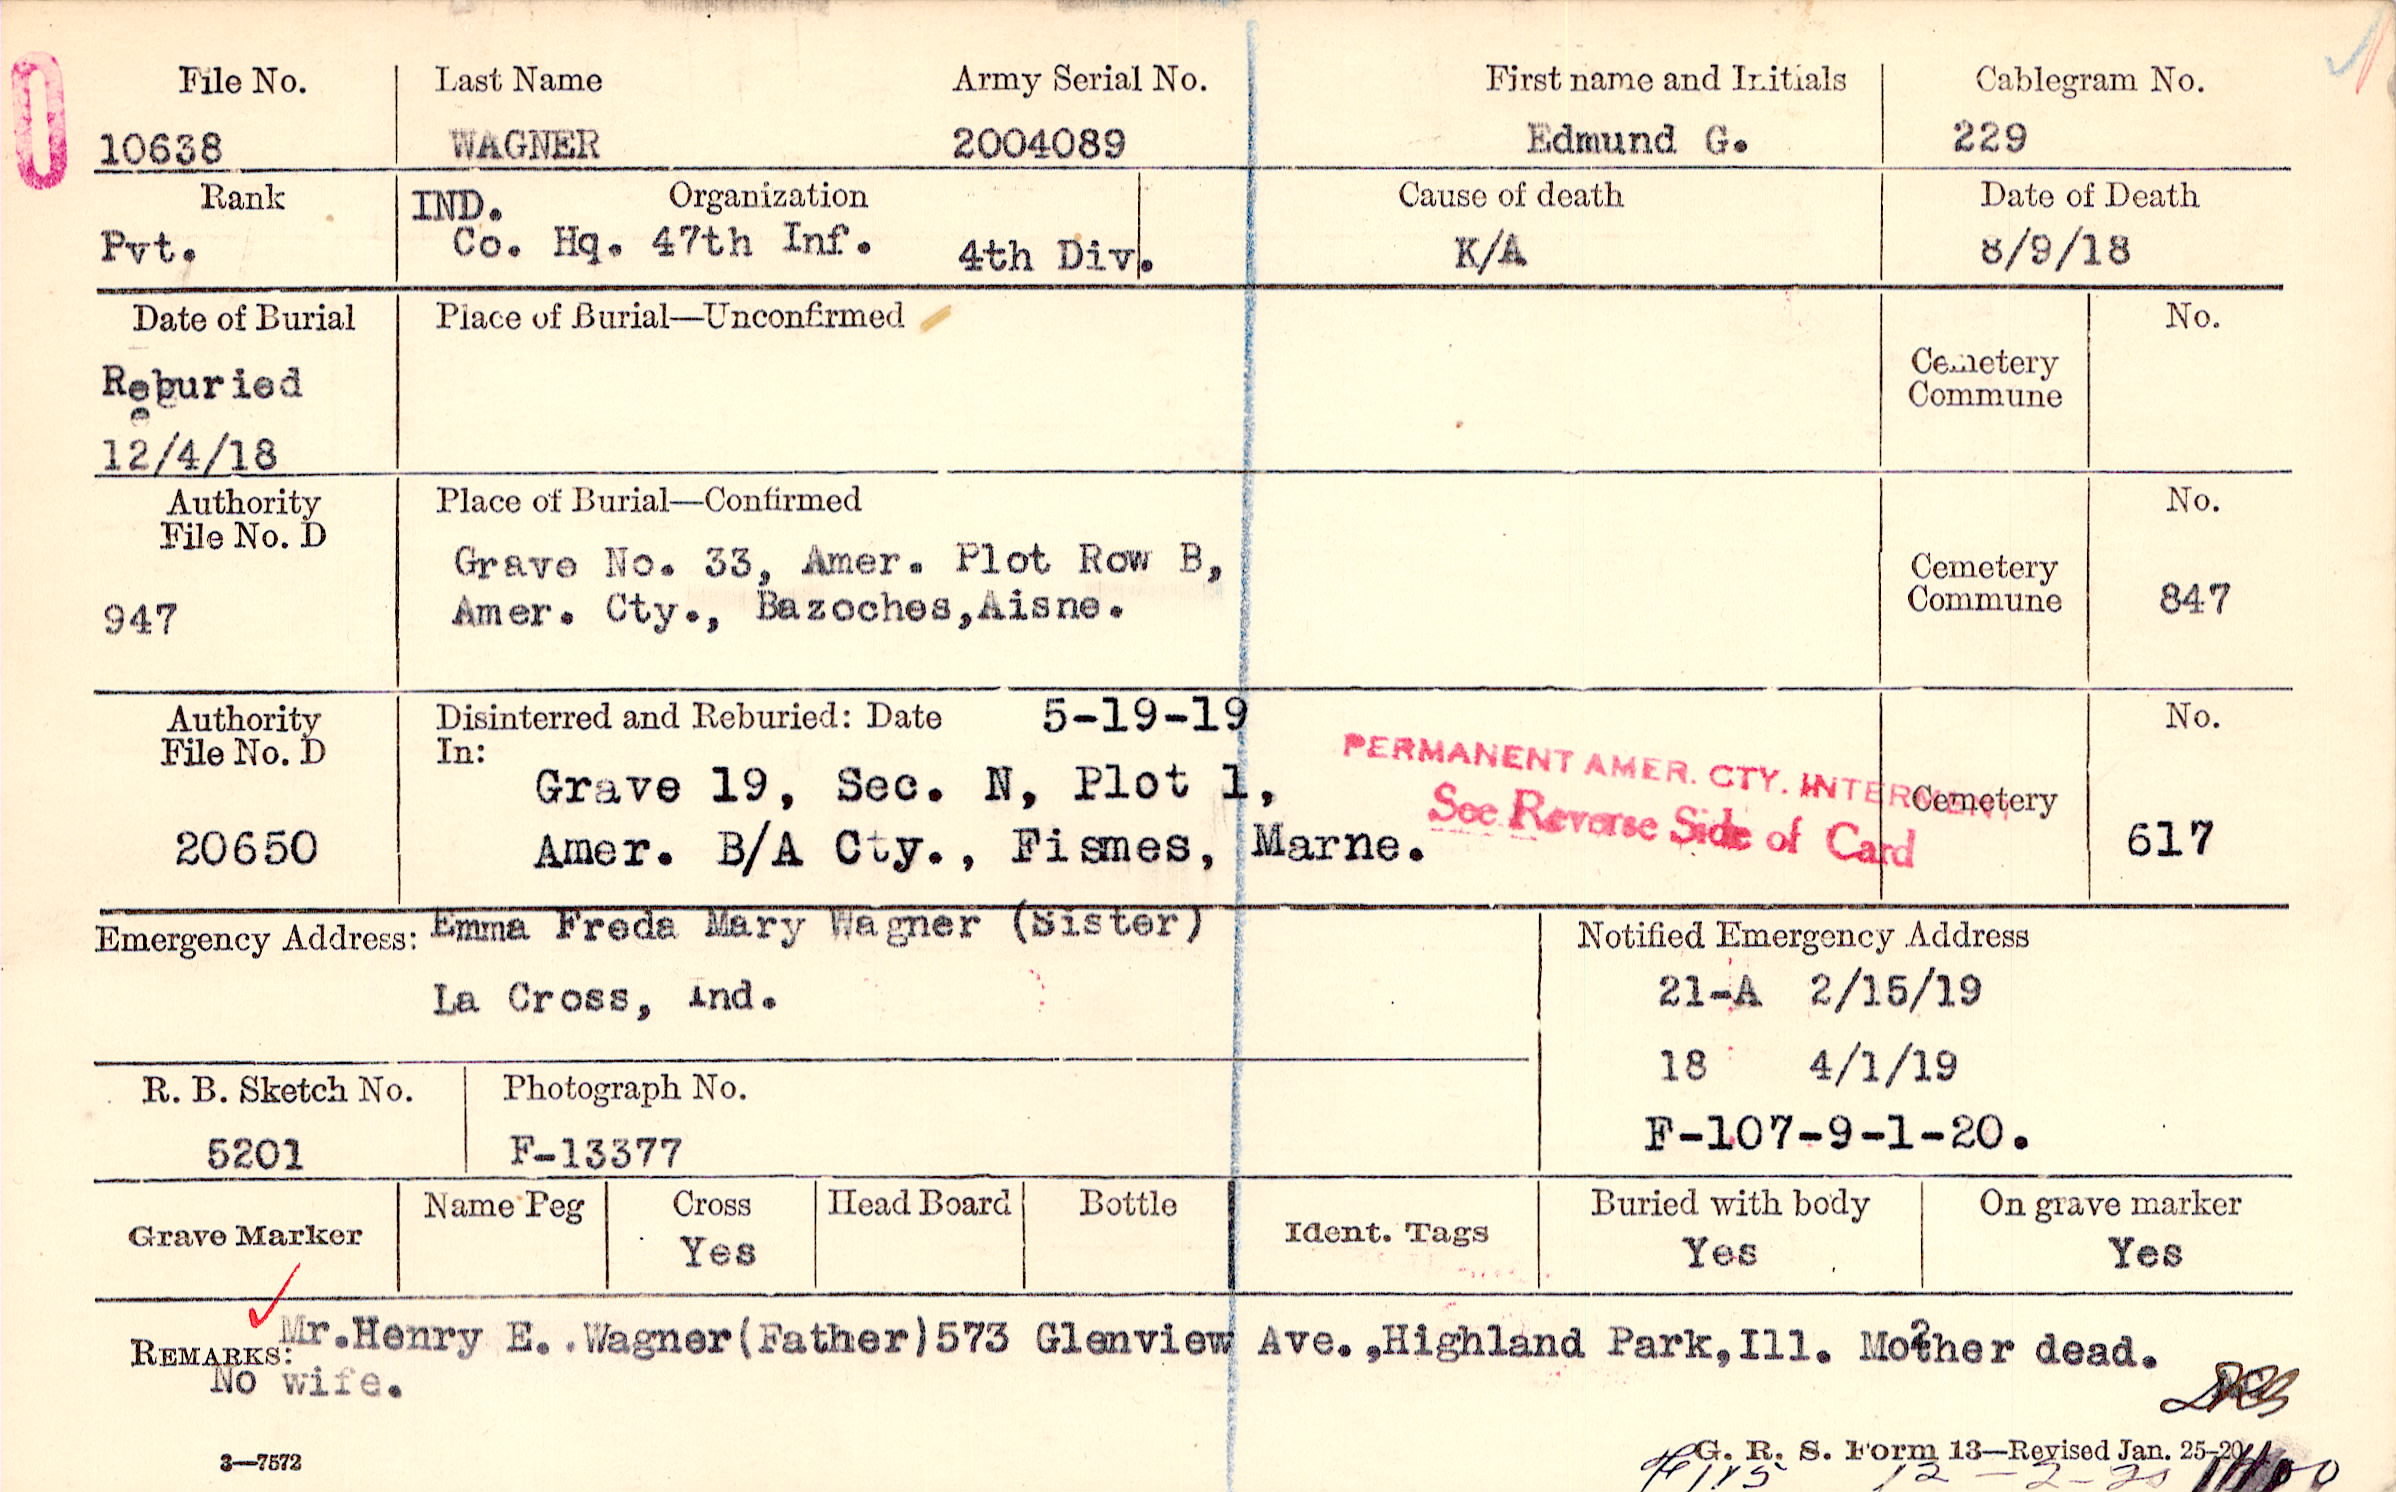 File No. Last Name Army Serial No. First name and Initials Cablegram No.
10638 WAGNER 2004089 Edmund G. 229
Rank IND. Organization Cause of death Date of Death
Pvt. Co. Hq. 47th Inf. 4th Div. K/A 8/9/18
Date of Burial Place of Burial—Unconfirmed No.
Cemetery
Commune
Reburied
12/4/18
Authority Place of Burial—Confirmed No.
File No. D
Grave No. 33, Amer. Plot Row B, Cemetery
947 Amer. Cty., Bazoches,Aisne. Commune 847
Authority Disinterred and Reburied: Date 5-19-19 No.
File No. D In:
PERMANENT AMER. CTY. INTERMENT
Grave 19, Sec. N, Plot 1, Cemetery
See Reverse Side of Card
20650 Amer. B/A Cty., Fismes, Marne. 617
Emergency Address: Emma Freda Mary Wagner (Sister) Notified Emergency Address
La Cross, Ind. 21-A 2/15/19
18 4/1/19
R. B. Sketch No. Photograph No.
5201 F-13377 F-107-9-1-20.
Grave Marker Name Peg Cross Head Board Bottle Ident. Tags Buried with body On grave marker
Yes Yes Yes
REMARKS: Mr.Henry E..Wagner(Father)573 Glenview Ave.,Highland Park,Ill. Mother dead.
No wife.
3—7572 G. R. S. Form 13—Revised Jan. 25-20
12-2-20